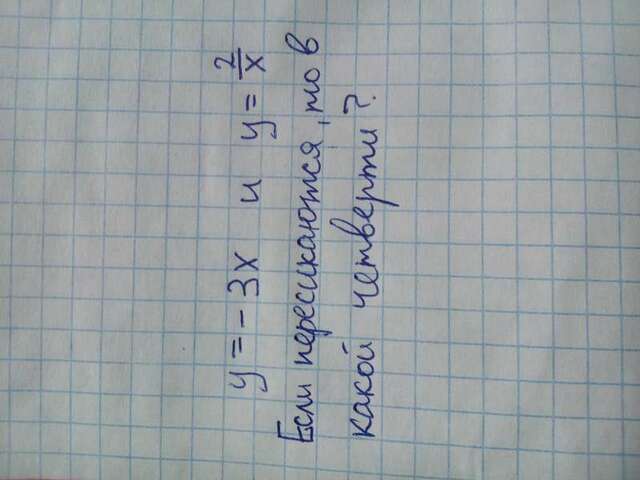 y = -3x и y = 2/x
Если пересикаются, то в
какой четверти?